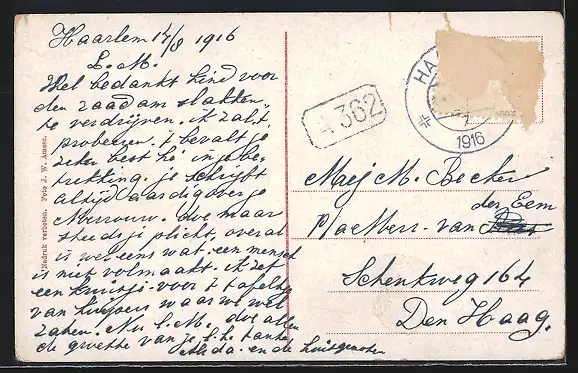 Haarlem 14/8 1916
L. M.
Wel bedankt kind voor
den raad om slakken
te verdrijven. ik zal 't
probeeren. 't bevalt je
zeker best hè in je be-
trekking. je schrijft
altijd aardig over je
Mevrouw. doe maar
steeds je plicht, overal
is wel eens wat. een mensch
is niet volmaakt. ik zet
een kruisje voor 't tafeltje
van waar we wel
zaten. Nu L. M. doe allen
de groette van je l. h. tante
Alida. en de huisgenoten
Nadruk verboten. Foto J. W. Ameſz.
362
HA
1916
Mej M. Becker
der Eem
p/a Mevr. van
Schenkweg 164
Den Haag.